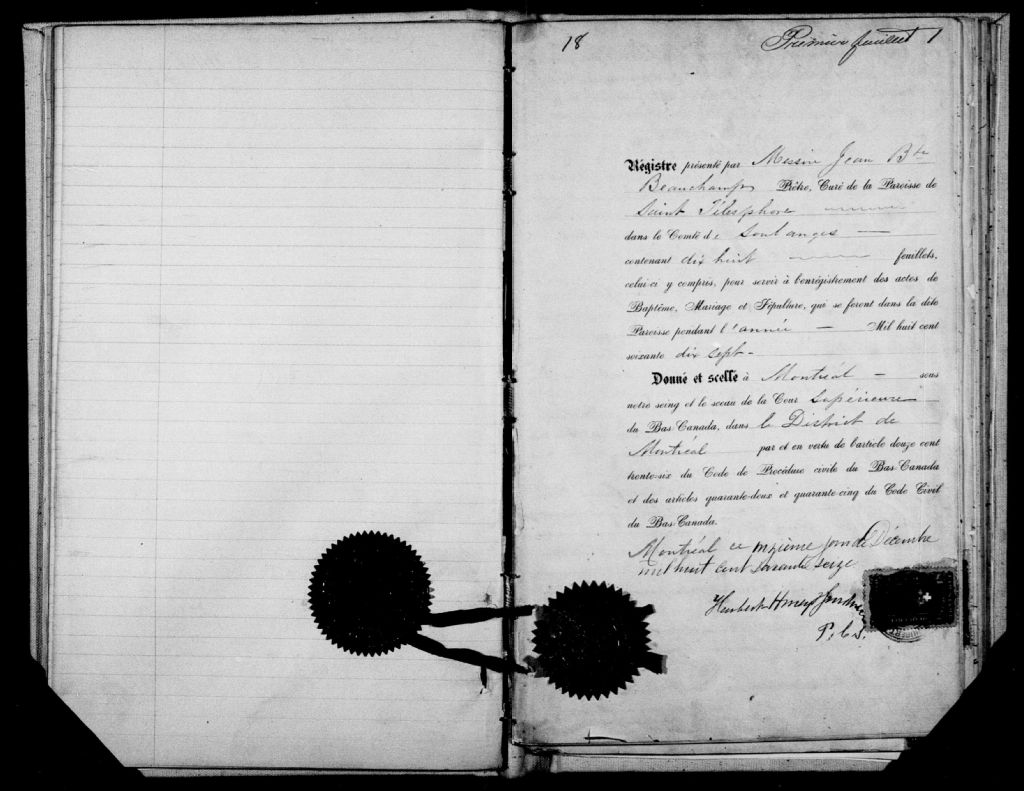 18
Premier feuillet 1
Régistre présenté par Messire Jean Bte
Beauchamp Prêtre, Curé de la Paroisse de
Saint Télesphore
dans le Comté de Soulanges
contenant dix huit feuillets,
celui-ci y compris, pour servir à l'enrégistrement des actes de
Baptême, Mariage et Sépulture, qui se feront dans la dite
Paroisse pendant l'année Mil huit cent
soixante dix sept
Donné et scellé à Montréal sous
notre seing et le sceau de la Cour Supérieure
du Bas-Canada, dans le District de
Montréal par et en vertu de l'article douze cent
trente-six du Code de Procédure civile du Bas-Canada
et des articles quarante-deux et quarante-cinq du Code Civil
du Bas-Canada.
Montréal ce onzième jour de Décembre
mil huit cent soixante seize
P.C.S.